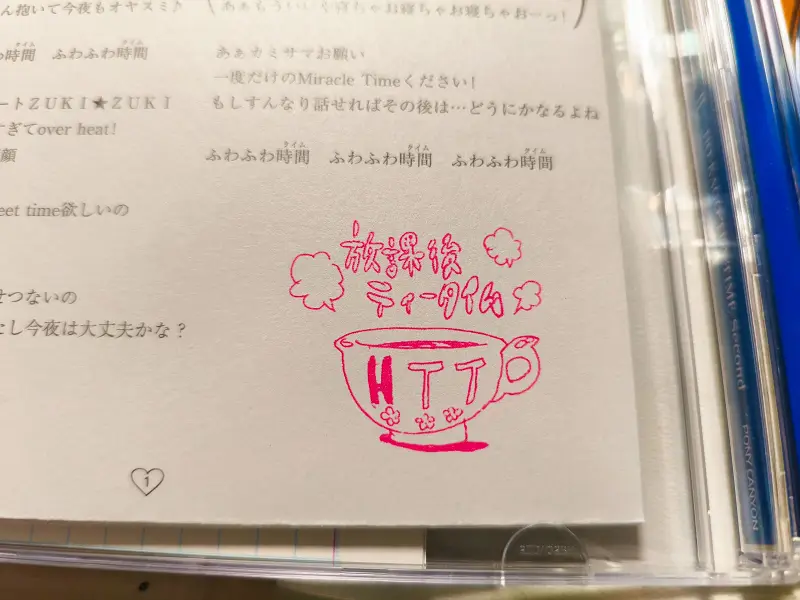 ん抱いて今夜もオヤスミ♪
時間 ふわふわ時間
タイム タイム
ートＺＵＫＩ★ＺＵＫＩ
ぎてover heat!
顔
eet time欲しいの
せつないの
たし今夜は大丈夫かな？
寝ちゃお寝ちゃお寝ちゃおーっ!
あぁカミサマお願い
一度だけのMiracle Timeください!
もしすんなり話せればその後は…どうにかなるよね
タイム タイム タイム
ふわふわ時間 ふわふわ時間 ふわふわ時間
放課後
ティータイム
HTT
1
TIME Second
PONY CANYON